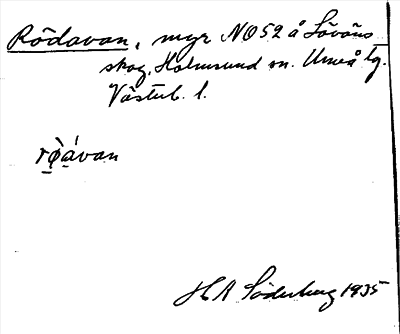 Rödavan, myr NO52 å Lövöns
skog, Holmsund sn. Umeå tg.
Västerb. l.
rø̀ávan
H A Söderberg 1935